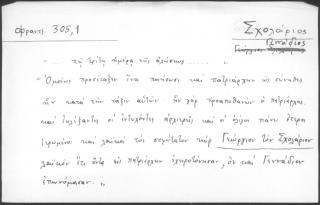 Φραντζ 305,1
Σχολάριος
Γεώργιος Γεννάδιος
"... τῇ τρίτῃ ἡμέρᾳ τῆς ἁλώσεως ....... "
"Ὁμοίως προσέταξεν ἵνα ποιήσωσι καὶ πατριάρχην ὡς σύνηθες
ἦν κατὰ τὴν τάξιν αὐτῶν ἦν γὰρ προαποθανὼν ὁ πατριάρχης.
καὶ ἐκλέξαντες οἱ ἐντυχόντες ἀρχιερεῖς καὶ οἱ ὀλίγοι πάνυ ἕτεροι
ἱερωμένοι καὶ λαϊκοὶ τὸν σοφώτατον κὺρ Γεώργιον τὸν Σχολάριον
λαϊκὸν ἔτι ὄντα ὡς πατριάρχην ἐχειροτόνησαν, ὃν καὶ Γεννάδιον
ἐπωνόμασαν. "